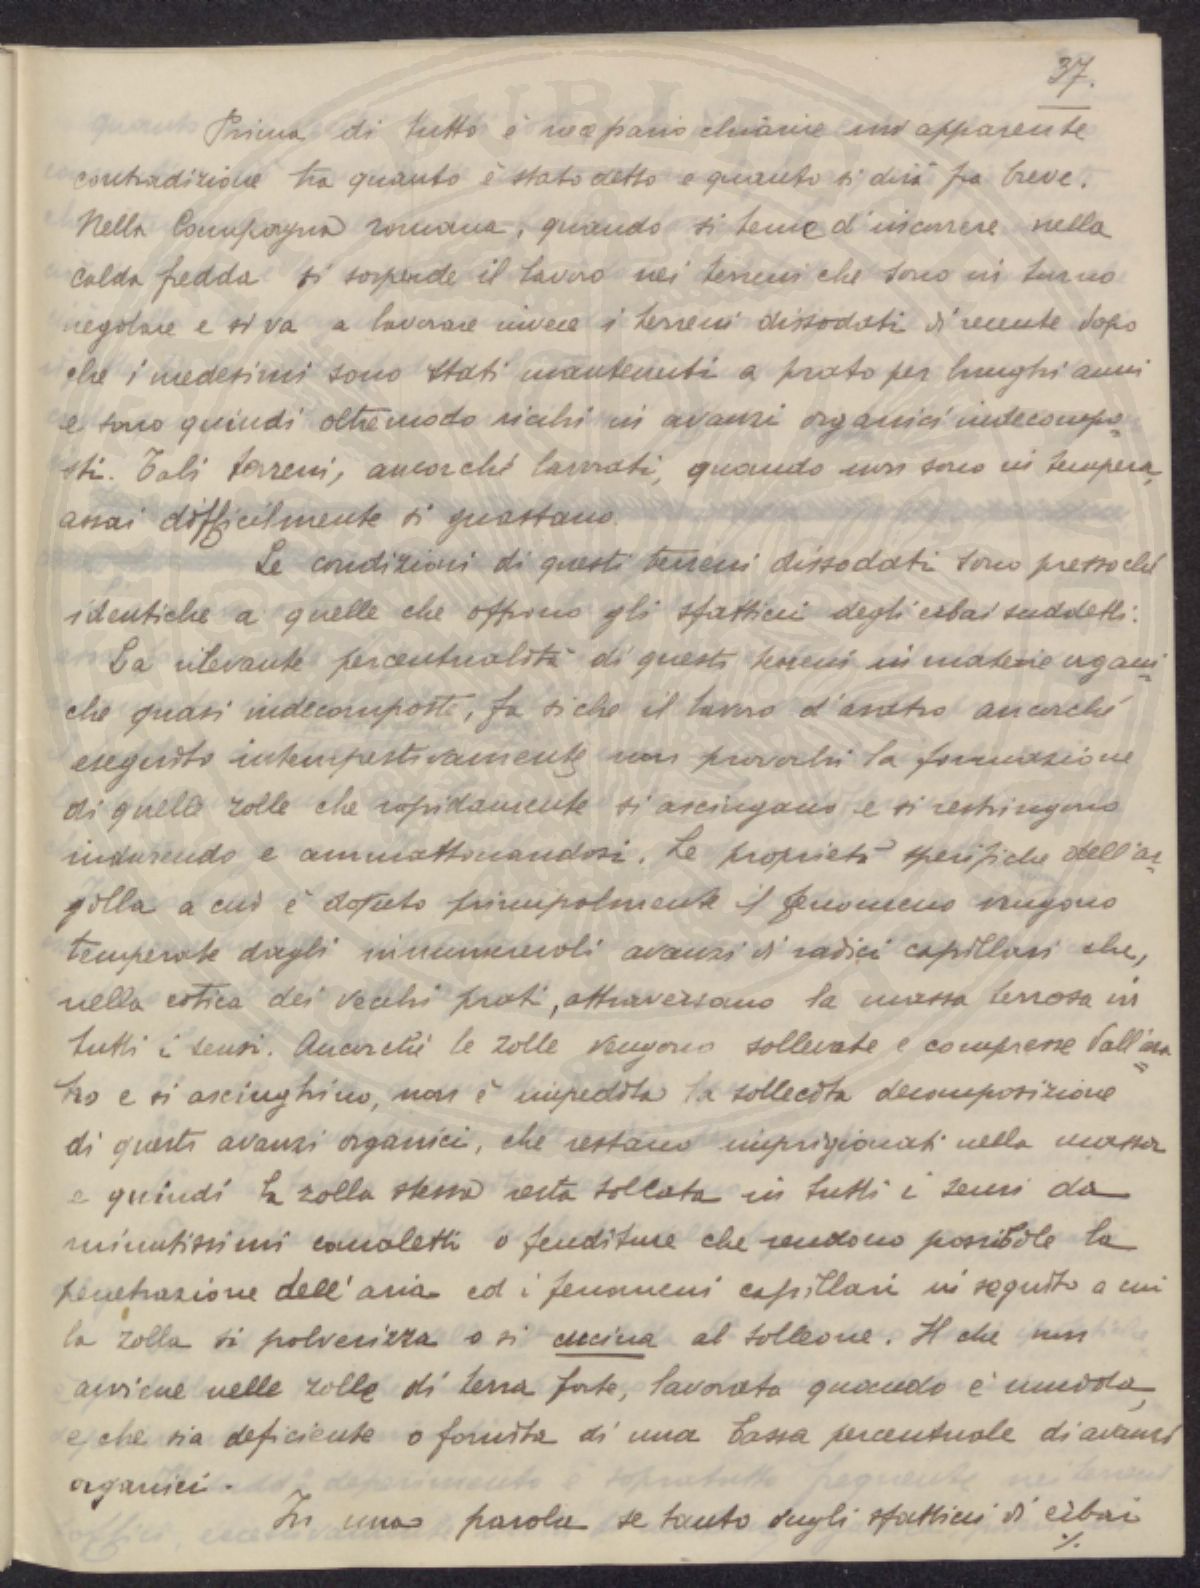 37.
Prima di tutto è necessario chiarire un'apparente
contradizione tra quanto è stato detto e quanto si dirà fra breve.
Nella Campagna romana, quando si teme d'incorrere nella
calda fredda si sospende il lavoro nei terreni che sono in turno
regolare e si va a lavorare invece i terreni dissodati di recente dopo
che i medesimi sono stati mantenuti a prato per lunghi anni
e sono quindi oltremodo ricchi in avanzi organici indecompo-
sti. Tali terreni, ancorché lavorati, quando non sono in tempera,
assai difficilmente si guastano.
Le condizioni di questi terreni dissodati sono pressoché
identiche a quelle che offrono gli sfatticci degli erbai suddetti.
La rilevante percentualità di questi terreni in materie organi=
che quasi indecomposte, fa siche il lavoro d'aratro ancorché
eseguito intempestivamente non provochi la formazione
di quelle zolle che rapidamente si asciugano e si restringono
indurendo e ammattonandosi. Le proprietà specifiche dell'ar=
gilla a cui è dovuto principalmente il fenomeno vengono
temperate dagli innumerevoli avanzi di radici capillari che,
nella cotica dei vecchi prati, attraversano la massa terrosa in
tutti i sensi. Ancorché le zolle vengono sollevate e compresse dall'ara=
tro e si asciughino, non è impedita la sollecita decomposizione
di questi avanzi organici, che restano imprigionati nella massa
e quindi la zolla stessa resta solcata in tutti i sensi da
minutissimi canaletti o fenditure che rendono possibile la
penetrazione dell'aria ed i fenomeni capillari in seguito a cui
la zolla si polverizza o si cucina al solleone. Il che non
avviene nelle zolle di terra forte, lavorata quando è umida,
e che sia deficiente o fornita di una bassa percentuale di avanzi
organici.
In una parola se tanto sugli sfatticci di erbai
./.